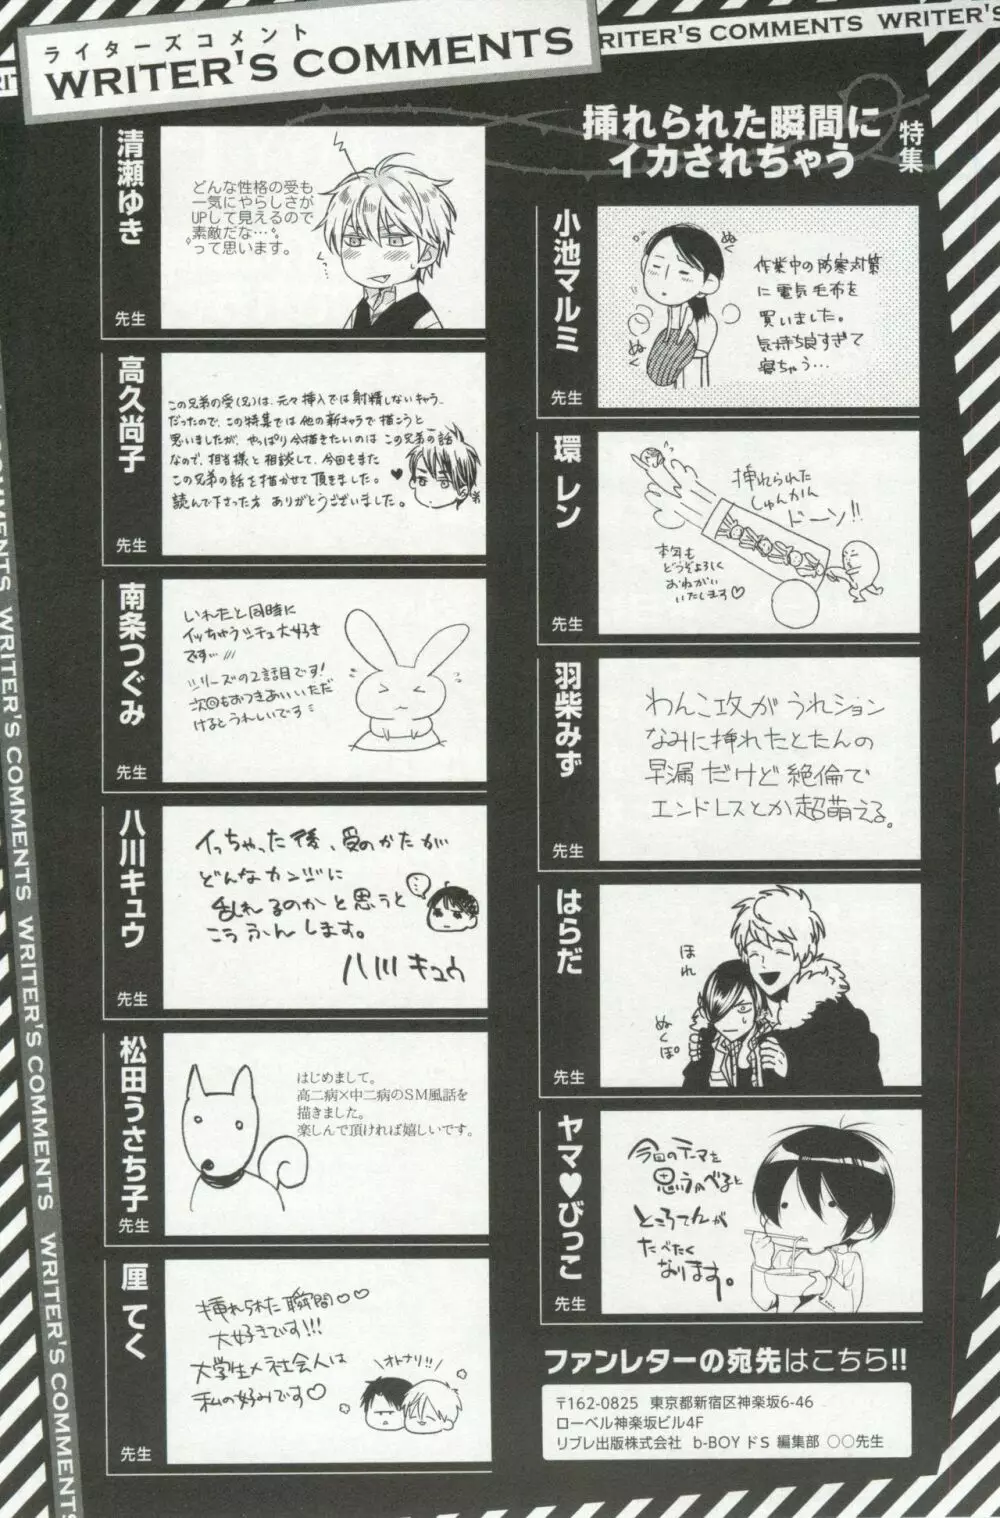 ライターズコメント
WRITER'S COMMENTS
RITER'S COMMENTS WRITER'S
特集
挿れられた瞬間に
イカされちゃう
小池マルミ
先生
作業中の防寒対策
に電気毛布を
買いました。
気持ち良すぎて
寝ちゃう…
ぬく
ぬく
環レン
先生
挿れられた
しゅんかん
ドーン!!
本年も
どうぞよろしく
おねがい
いたします♡
羽柴みず
先生
わんこ攻がうれション
なみに挿れたとたんの
早漏だけど絶倫で
エンドレスとか超萌える。
はらだ
先生
ほれ
ぬくぽ。
ヤマ♥びっこ
先生
今回のテーマを
思うかべると
ところてんが
たべたく
なります。
清瀬ゆき
先生
どんな性格の受も
一気にやらしさが
UPして見えるので
素敵だな…
って思います。
高久尚子
先生
この兄弟の受(兄)は、元々挿入では射精しないキャラ
だったので、この特集では他の新キャラで描こうと
思いましたが、やっぱり今描きたいのはこの兄弟の話
なので、担当様と相談して、今回もまた
この兄弟の話を描かせて頂きました。
読んで下さった方 ありがとうございました。
弟
南条つぐみ
先生
いれたと同時に
イッちゃうシチュ大好き
です…
シリーズの2話目です!
次回もおつきあいいただ
けるとうれしいです
八川キュウ
先生
イっちゃった後、受のかたが
どんなカンジに
乱れるのかと思うと
こうふんします。
八川キュウ
松田うさち子
先生
はじめまして。
高二病×中二病のSM風話を
描きました。
楽しんで頂ければ嬉しいです。
厘てく
先生
挿れられた瞬間♡♡
大好きです!!!
大学生×社会人は
私の好みです♡
オトナリ!!
ファンレターの宛先はこちら!!
〒162-0825 東京都新宿区神楽坂6-46
ローベル神楽坂ビル4F
リブレ出版株式会社 b-BOYドS 編集部 ○○先生
WRITER'S COMMENTS WRITER'S COMMENTS WRITER'S COMMENTS